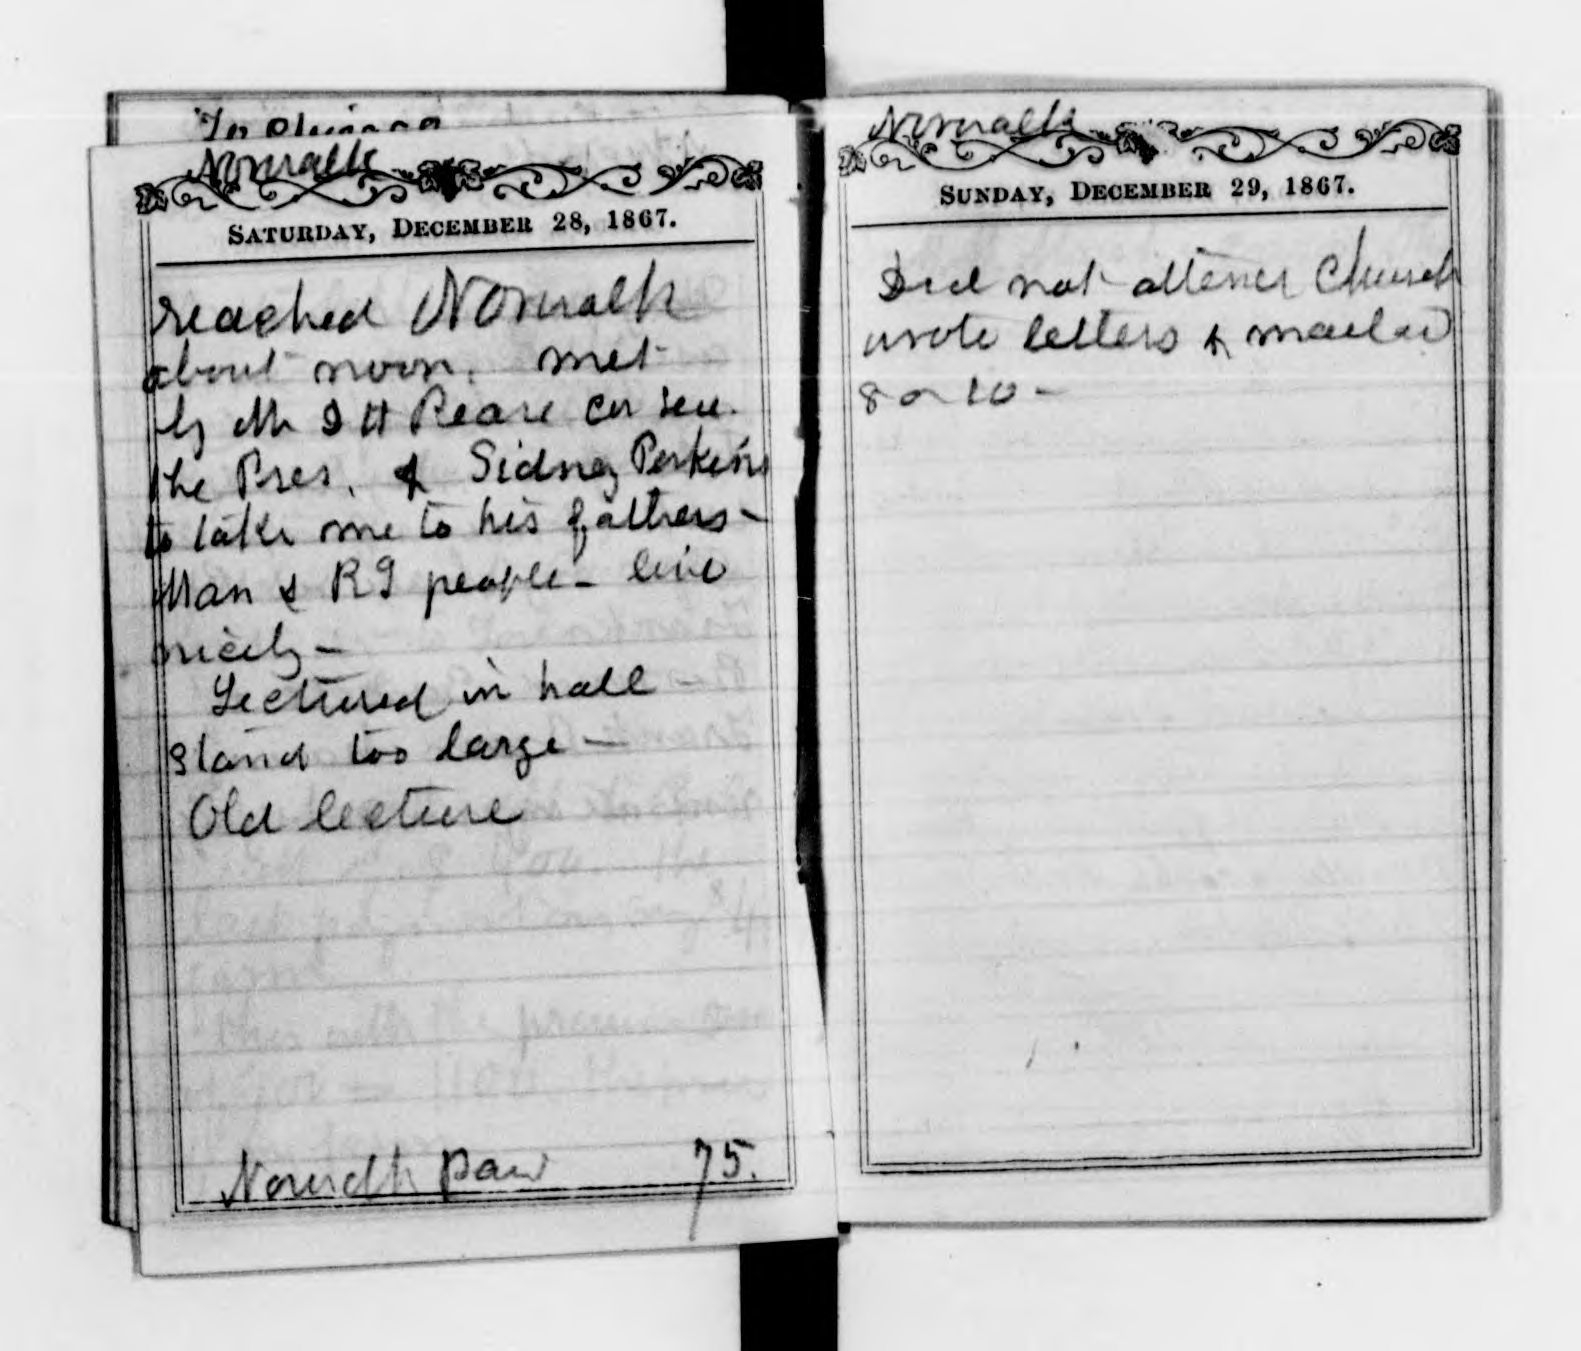 To Chicago
Norwalk
SATURDAY, DECEMBER 28, 1867.
reached Norwalk
about noon. met
by Mr I H Pease Cor Sec.
the Pres. & Sidney Perkins
to take me to his fathers –
Man & R I people – live
nicely –
Lectured in hall
stand too large –
Old lecture
Norwalk Paid 75.
Norwalk
SUNDAY, DECEMBER 29, 1867.
Did not attend Church
wrote letters & mailed
8 or 10 –